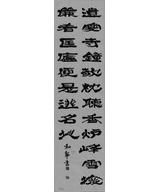 遺愛寺鐘欹枕聽香炉峰雪撥
簾看匡廬便是逃名地